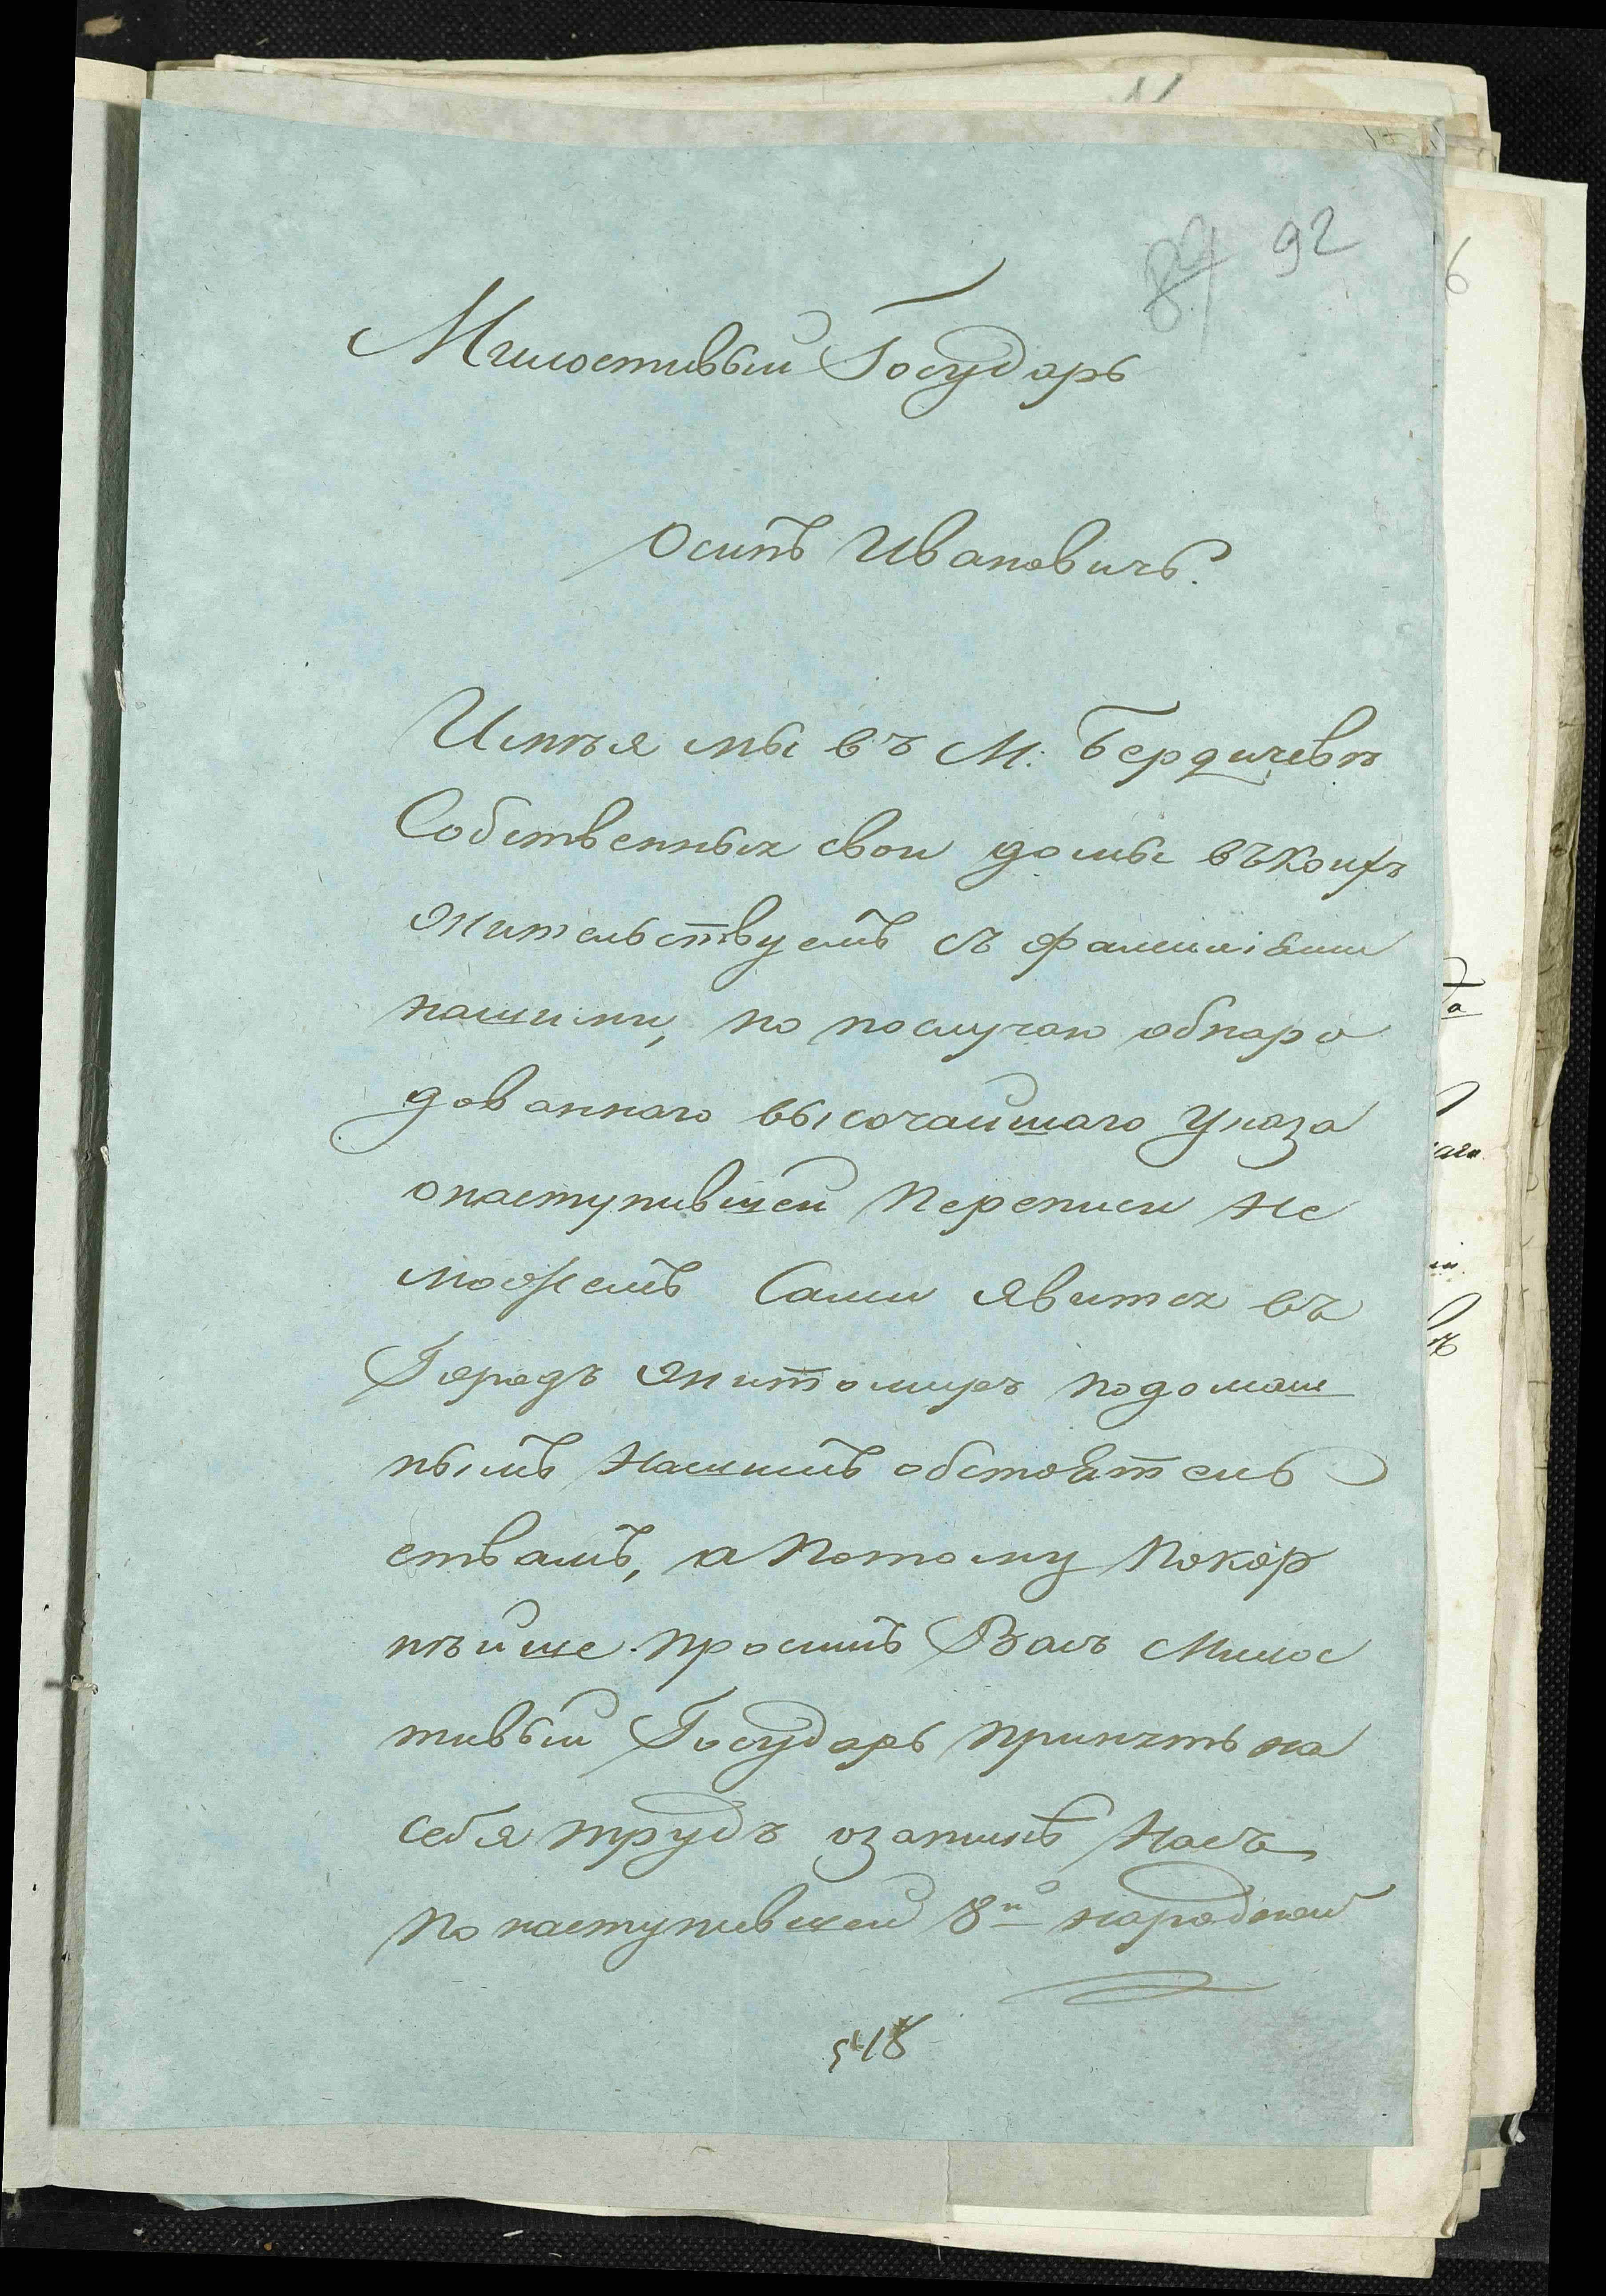 92
Милостивый Государь
Осипъ Ивановичъ.
Имѣя мы въ М: Бердичевѣ
Собственныя свои домы въ коихъ
жительствуемъ съ фамиліями
нашими, но по случаю обнаро
дованнаго высочайшаго Указа
о наступившей Переписи не
можемъ Сами явится въ
Городъ Житомиръ по домаш
нымъ нашимъ обстоятель
ствамъ, а потому покор
нѣйше просимъ Васъ Милос
тивый Государь принять на
себя трудъ
насъ
по наступившей 8й народной